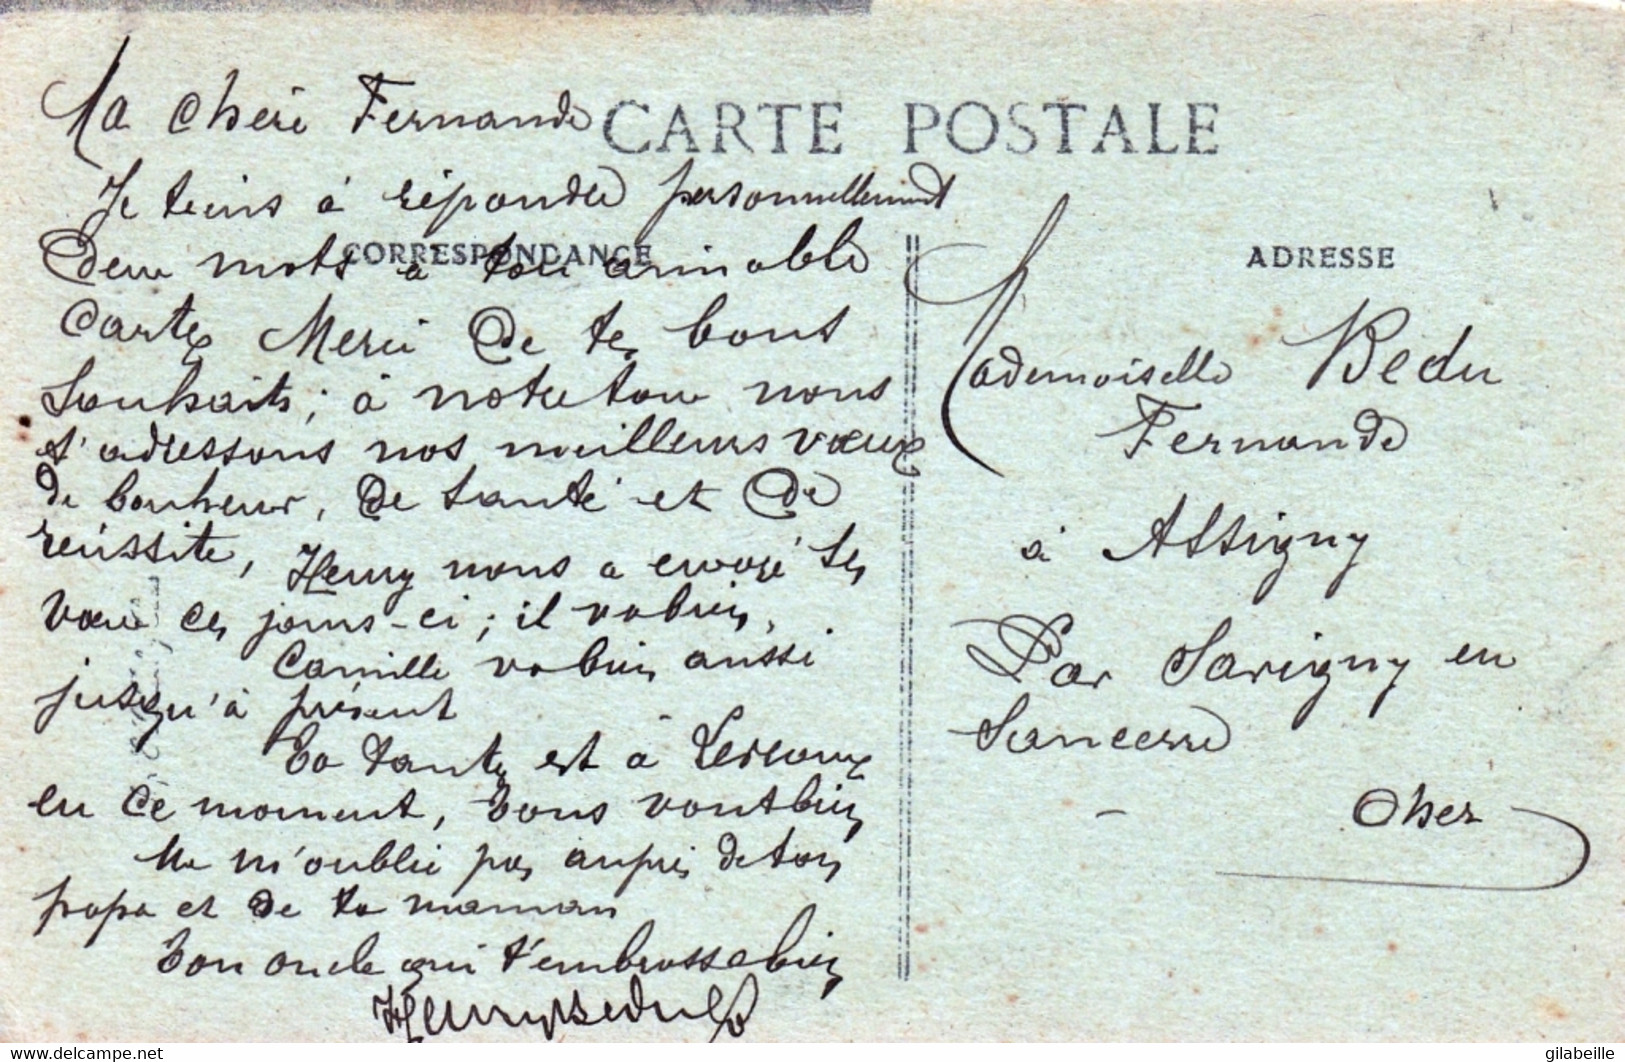 Ma Chèri Fernande
CARTE POSTALE
Je teins à répondre personnellement
CORRESPONDANCE
deux mots à ton aimable
Carte Merci de tes bons
Souhaits ; à notre tour nous
t'adressons nos meilleurs vœux
de bonheur, de santé et de
réussite, Henry nous a envoyé ses
vœux ces jours-ci ; il va bien,
Camille va bien aussi
jusqu'à présent
Ta tante est à
en ce moment, Tous vont bien
Ne m'oublie pas auprès de ton
papa et de ta maman
Ton oncle qui t'embrasse bien
Henry Bedu
ADRESSE
Mademoiselle Bedu
Fernande
à Assigny
Par Savigny en
Sancerre
- Cher
www.delcampe.net
gilabeille